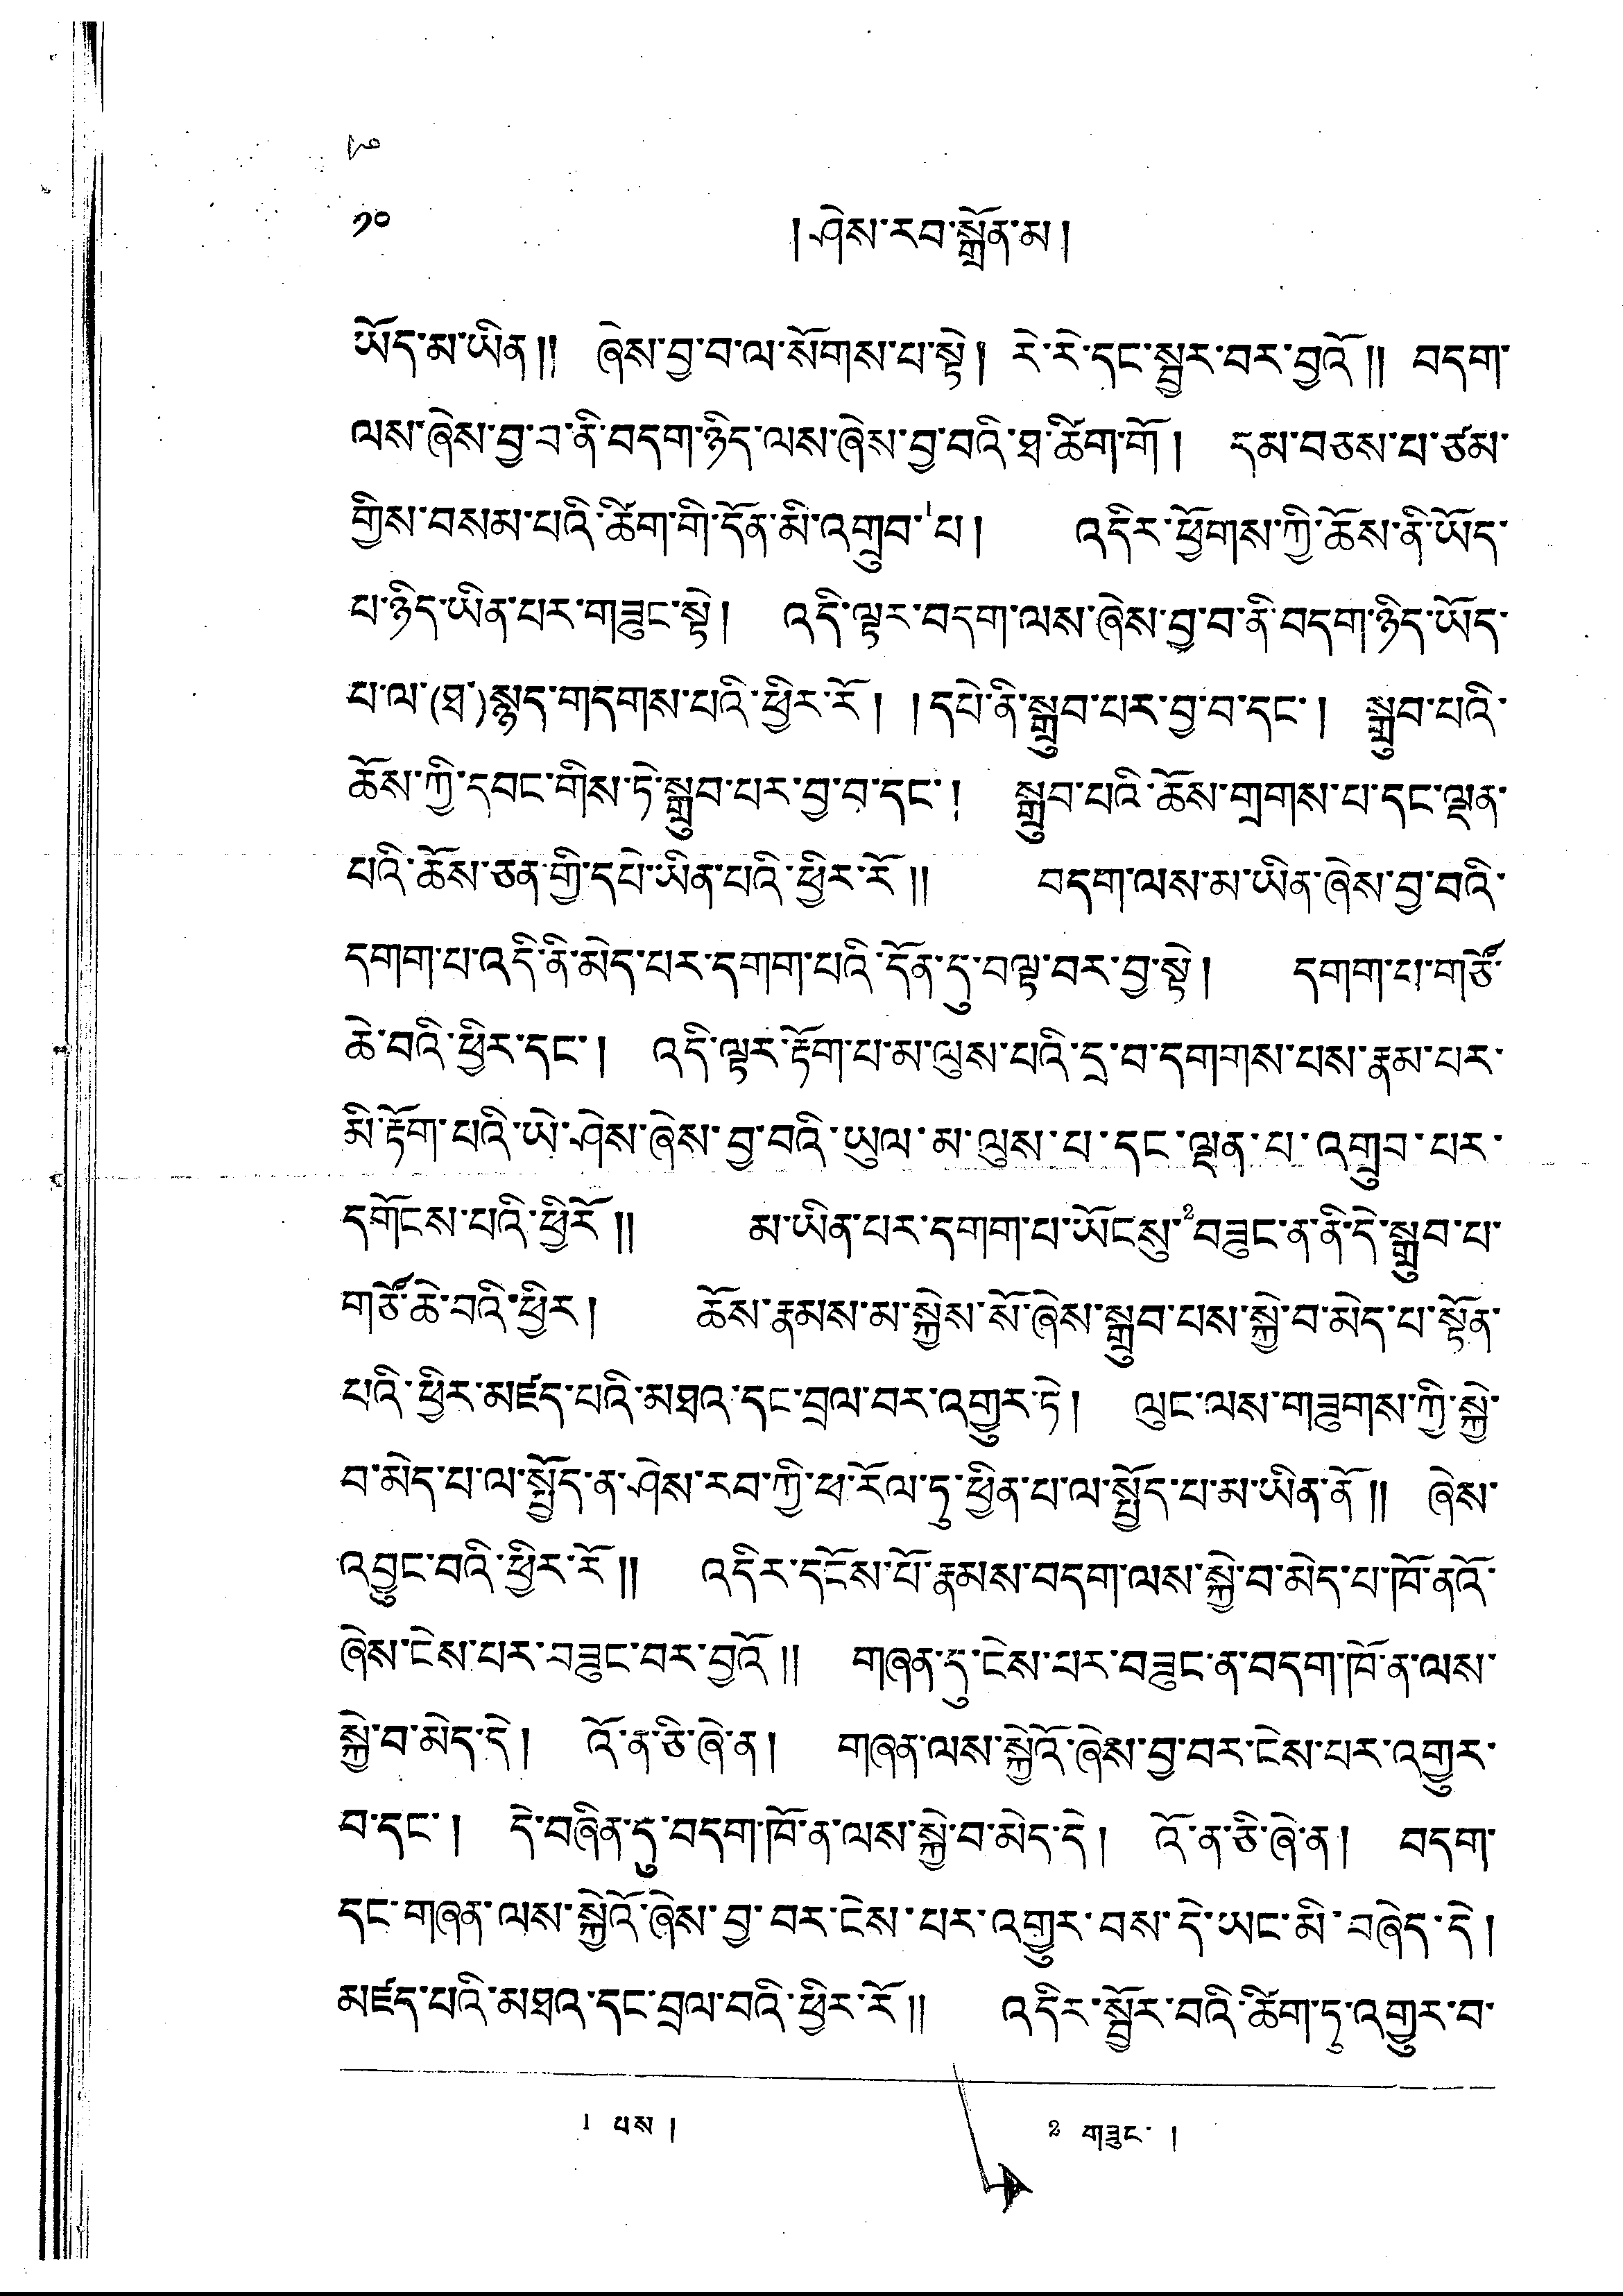 ༡༠
༡༠ །ཤེས་རབ་སྒྲོན་མ།
ཡོད་མ་ཡིན།། ཞེས་བྱ་བ་ལ་སོགས་པ་སྟེ། རེ་རེ་དང་སྦྱར་བར་བྱའོ།། བདག་
ལས་ཞེས་བྱ་བ་ནི་བདག་ཉིད་ལས་ཞེས་བྱ་བའི་ཐ་ཚིག་གོ། དམ་བཅས་པ་ཙམ་
གྱིས་བསམ་པའི་ཚིག་གི་དོན་མི་འགྲུབ་¹པ། འདིར་ཕྱོགས་ཀྱི་ཆོས་ནི་ཡོད་
པ་ཉིད་ཡིན་པར་གཟུང་སྟེ། འདི་ལྟར་བདག་ལས་ཞེས་བྱ་བ་ནི་བདག་ཉིད་ཡོད་
པ་ལ་(ཐ་)སྙད་གདགས་པའི་ཕྱིར་རོ། །དཔེ་ནི་སྒྲུབ་པར་བྱ་བ་དང་། སྒྲུབ་པའི་
ཆོས་ཀྱི་དབང་གིས་ཏེ་སྒྲུབ་པར་བྱ་བ་དང་། སྒྲུབ་པའི་ཆོས་གྲགས་པ་དང་ལྡན་
པའི་ཆོས་ཅན་གྱི་དཔེ་ཡིན་པའི་ཕྱིར་རོ།། བདག་ལས་མ་ཡིན་ཞེས་བྱ་བའི་
དགག་པ་འདི་ནི་མེད་པར་དགག་པའི་དོན་དུ་བལྟ་བར་བྱ་སྟེ། དགག་པ་གཙོ་
ཆེ་བའི་ཕྱིར་དང་། འདི་ལྟར་རྟོག་པ་མ་ལུས་པའི་དྲ་བ་དགགས་པས་རྣམ་པར་
མི་རྟོག་པའི་ཡེ་ཤེས་ཞེས་བྱ་བའི་ཡུལ་མ་ལུས་པ་དང་ལྡན་པ་འགྲུབ་པར་
དགོངས་པའི་ཕྱིརོ།། མ་ཡིན་པར་དགག་པ་ཡོངསུ་²བཟུང་ན་ནི་དེ་སྒྲུབ་པ་
གཙོ་ཆེ་བའི་ཕྱིར། ཆོས་རྣམས་མ་སྐྱེས་སོ་ཞེས་སྒྲུབ་པས་སྐྱེ་བ་མེད་པ་སྟོན་
པའི་ཕྱིར་མཛད་པའི་མཐའ་དང་བྲལ་བར་འགྱུར་ཏེ། ལུང་ལས་གཟུགས་ཀྱི་སྐྱེ་
བ་མེད་པ་ལ་སྤྱོད་ན་ཤེས་རབ་ཀྱི་ཕ་རོལ་དུ་ཕྱིན་པ་ལ་སྤྱོད་པ་མ་ཡིན་ནོ།། ཞེས་
འབྱུང་བའི་ཕྱིར་རོ།། འདིར་དངོས་པོ་རྣམས་བདག་ལས་སྐྱེ་བ་མེད་པ་ཁོ་ནའོ་
ཞེས་ངེས་པར་བཟུང་བར་བྱའོ།། གཞན་དུ་ངེས་པར་བཟུང་ན་བདག་ཁོ་ན་ལས་
སྐྱེ་བ་མེད་དེ། འོ་ན་ཅི་ཞེ་ན། གཞན་ལས་སྐྱེའོ་ཞེས་བྱ་བར་ངེས་པར་འགྱུར་
བ་དང་། དེ་བཞིན་དུ་བདག་ཁོ་ན་ལས་སྐྱེ་བ་མེད་དེ། འོ་ན་ཅི་ཞེ་ན། བདག་
དང་གཞན་ལས་སྐྱེའོ་ཞེས་བྱ་བར་ངེས་པར་འགྱུར་བས་དེ་ཡང་མི་བཞེད་དེ།
མཛད་པའི་མཐའ་དང་བྲལ་བའི་ཕྱིར་རོ།། འདིར་སྦྱོར་བའི་ཚིག་ཏུ་འགྱུར་བ་
¹ པས། ² གཟུང་།